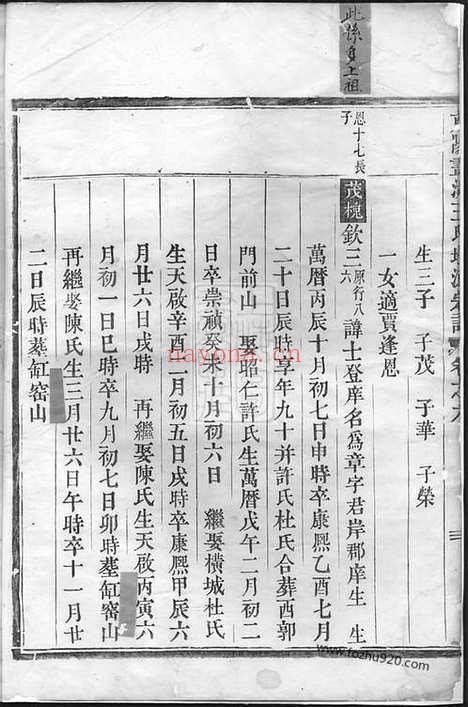 此孫身上祖
生三子　子茂　子華　子榮
一女適賈逢恩
恩十七長子
茂槐 欽三六 原行八 諱士登庠名爲章字君岸郡庠生　生
萬曆丙辰十月初七日申時卒康熙乙酉七月
二十日辰時享年九十并許氏杜氏合葬酉郭
門前山　娶昭仁許氏生萬曆戊午二月初二
日卒崇禎癸未十月初六日　繼娶橫城杜氏
生天啟辛酉二月初五日戌時卒康熙甲辰六
月廿六日戌時　再繼娶陳氏生天啟丙寅六
月初一日巳時卒九月初七日卯時塟缸窑山
再繼娶陳氏生三月廿六日午時卒十一月廿
二日辰時塟缸窑山
nayona.cn
www.fozhu920.com